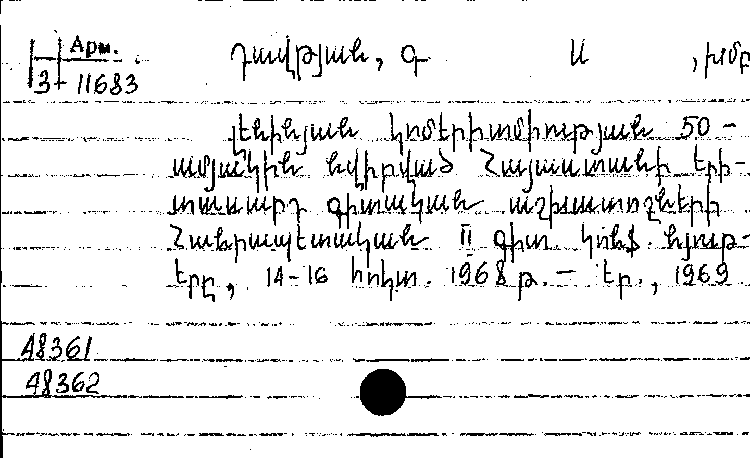 Арм.
3+ 11683
Դավթյան, Գ Ա , խմբ
Լենինյան կոմերիտմիության 50-
ամյակին նվիրված Հայաստանի երի-
տասարդ գիտական աշխատողների
Հանրապետական II գիտ կոնֆ. նյութ-
երը, 14-16 հոկտ. 1968 թ. — Եր., 1969
A8361
A8362